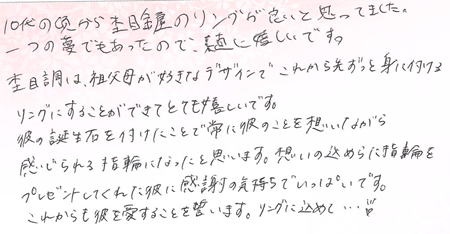 10代の頃から杢目金屋のリングが良いと思ってました。
一つの夢でもあったので、素直に嬉しいです。
杢目調は、祖父母が好きなデザインでこれから先ずっと身に付ける
リングにすることができてとても嬉しいです。
彼の誕生石を付けたことで常に彼のことを想いながら
感じられる指輪になったと思います。想いの込められた指輪を
プレゼントしてくれた彼に感謝の気持ちでいっぱいです。
これからも彼を愛することを誓います。リングに込めて…